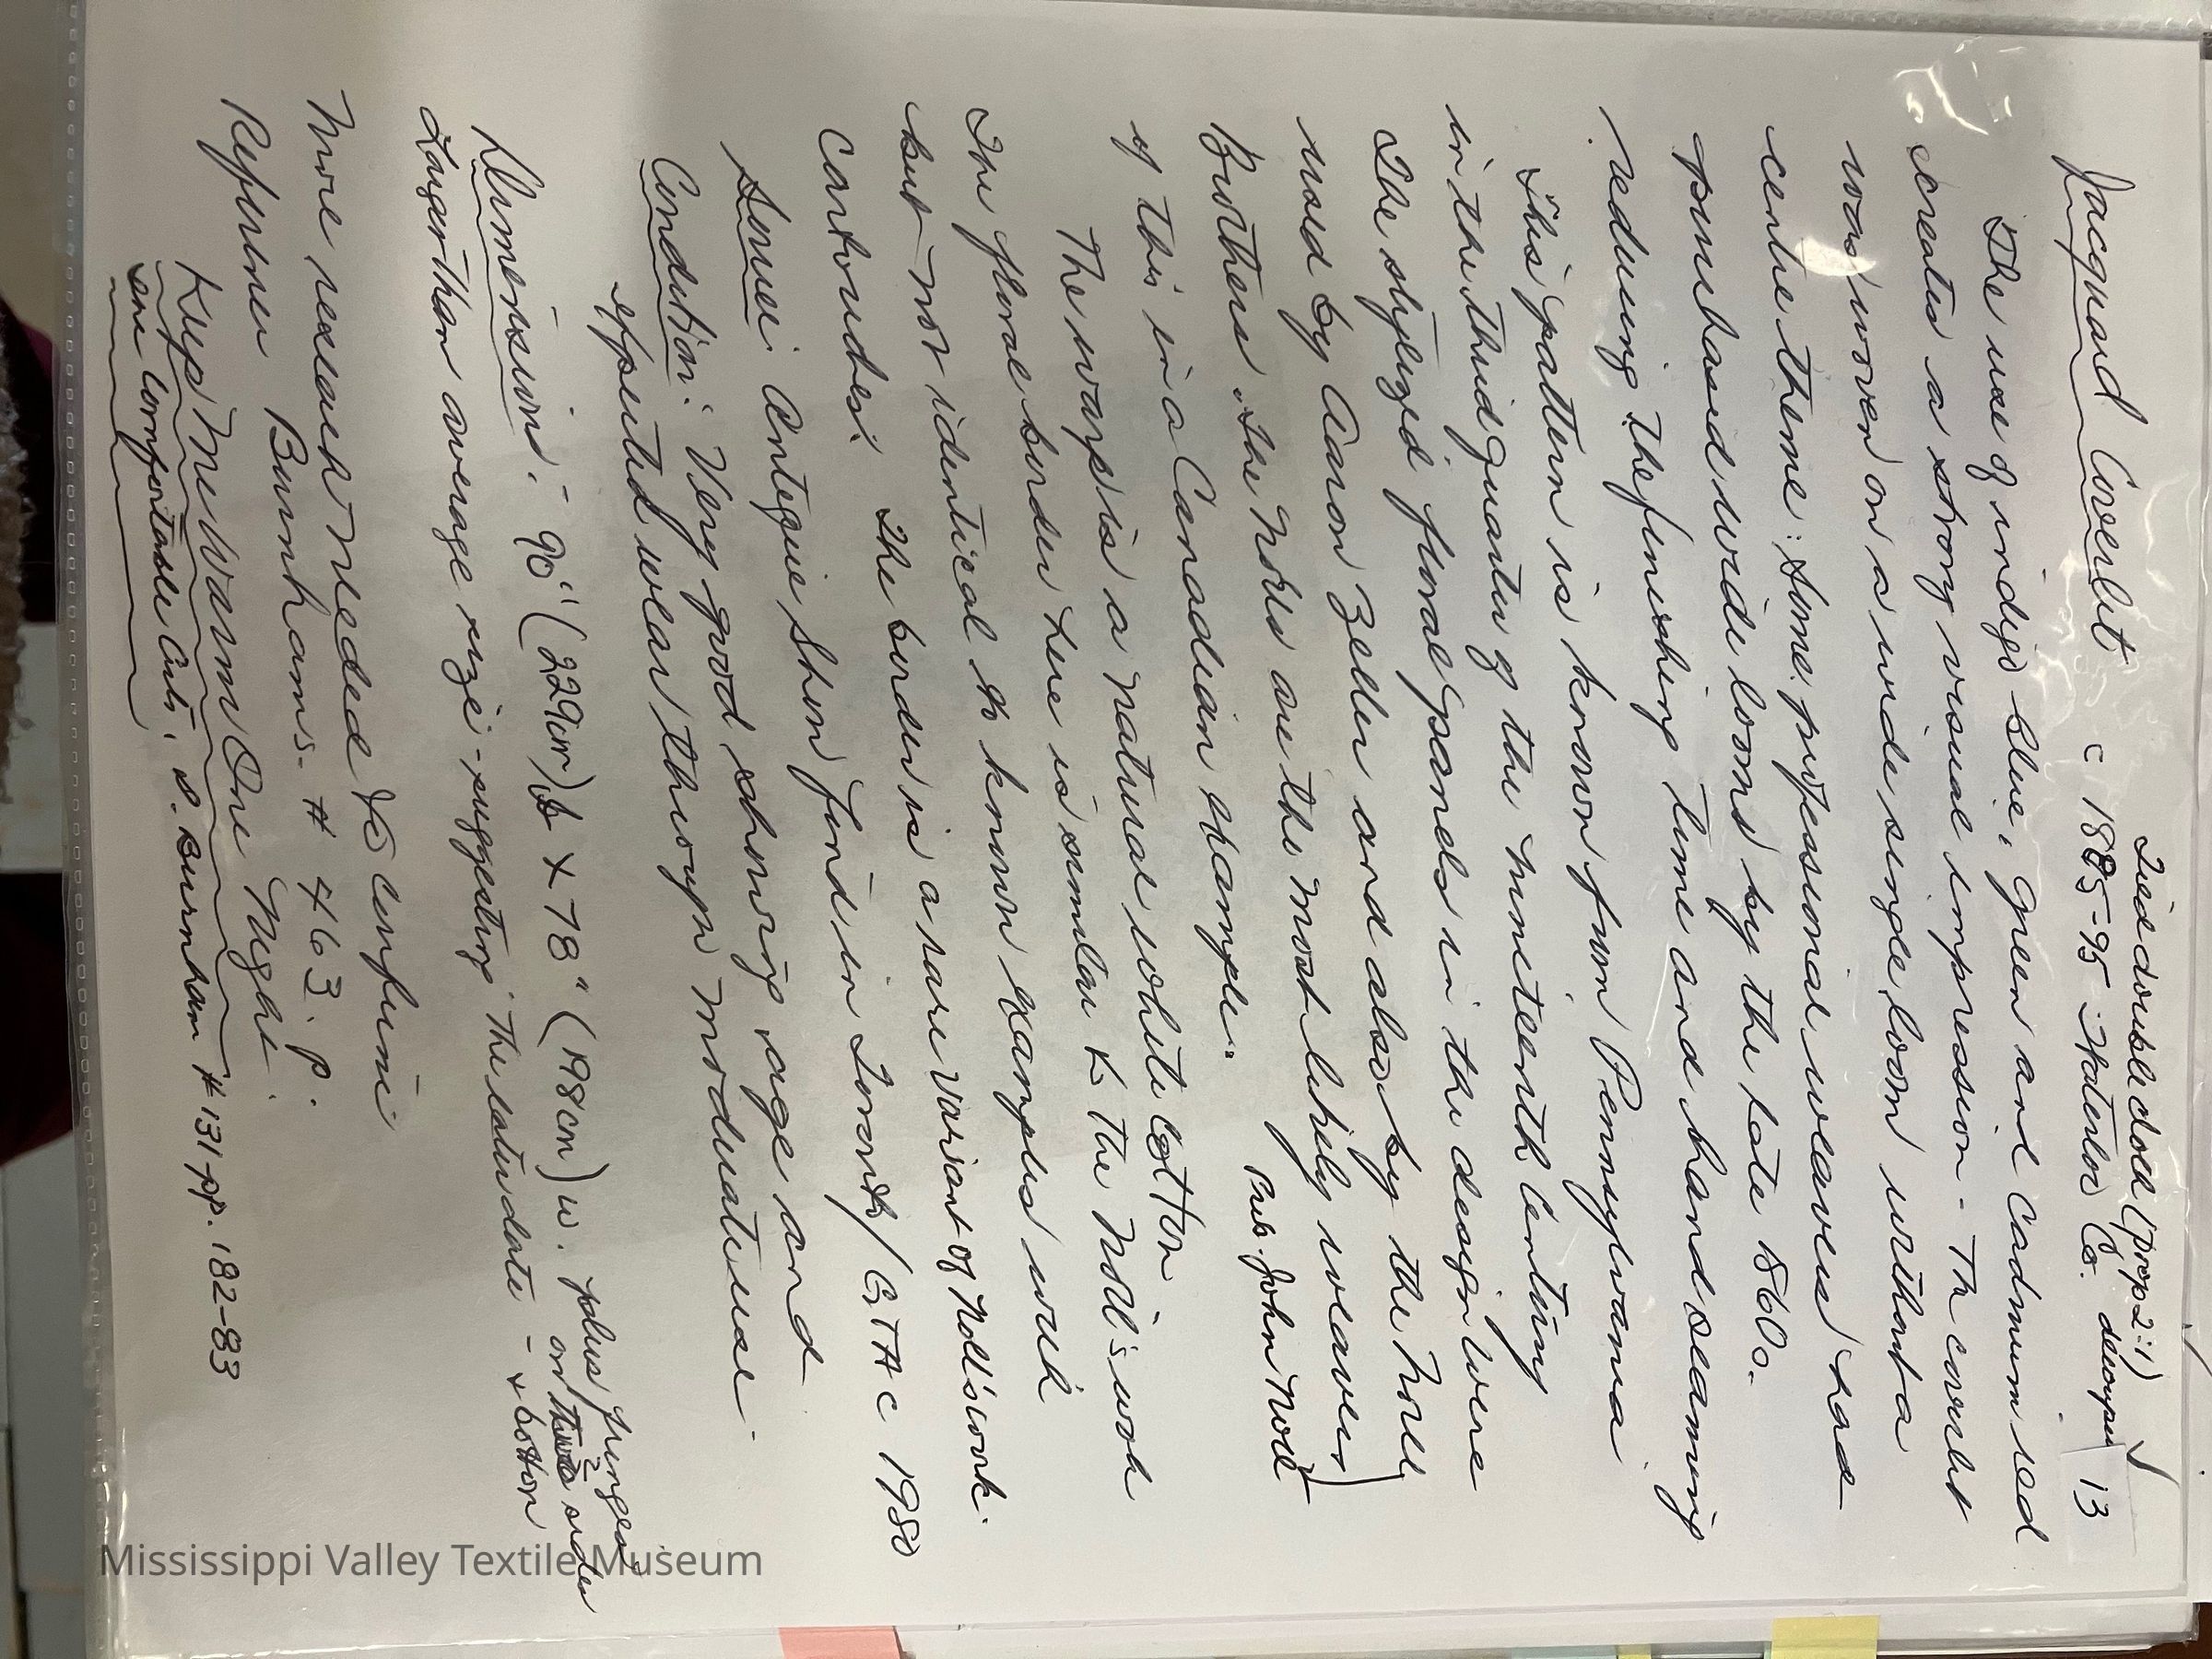 Tied doublecloth (prop 2:1) ✓
Jacquard Coverlet c 1885-95 Waterloo Co. 13
The use of indigo blue, green and cadmium red
creates a strong visual impression - The coverlet
was woven on a wide single loom without a
centre theme: Some professional weavers had
purchased wide looms by the late 1860s.
reducing the finishing time and hand seaming
This pattern is known from Pennsylvania
in the third quarter of the nineteenth century
The stylized floral panels in the design were
used by Aaron Zeller and also by the Noll
Brothers. The Nolls are the most likely weavers
of this in a Canadian example. Prob. John Noll
The warp is a natural white cotton
The floral border here is similar to the Noll's work
but not identical to known examples work
The border is a rare variant of Noll's work.
Source: Antique Show find in Toronto/GTA c 1980
Condition: Very good showing age and
expected wear through moderate use.
Dimensions: - 90" (229cm) L x 78" (198cm) w. plus fringes
on two 2 sides
+ bottom
Larger than average size - suggesting the later date -
More research needed to confirm
Reference Burnhams - # 463. p.
Keep Me Warm One Night
and Comfortable Arts, D. Burnham # 131 pp. 182-83
Mississippi Valley Textile Museum